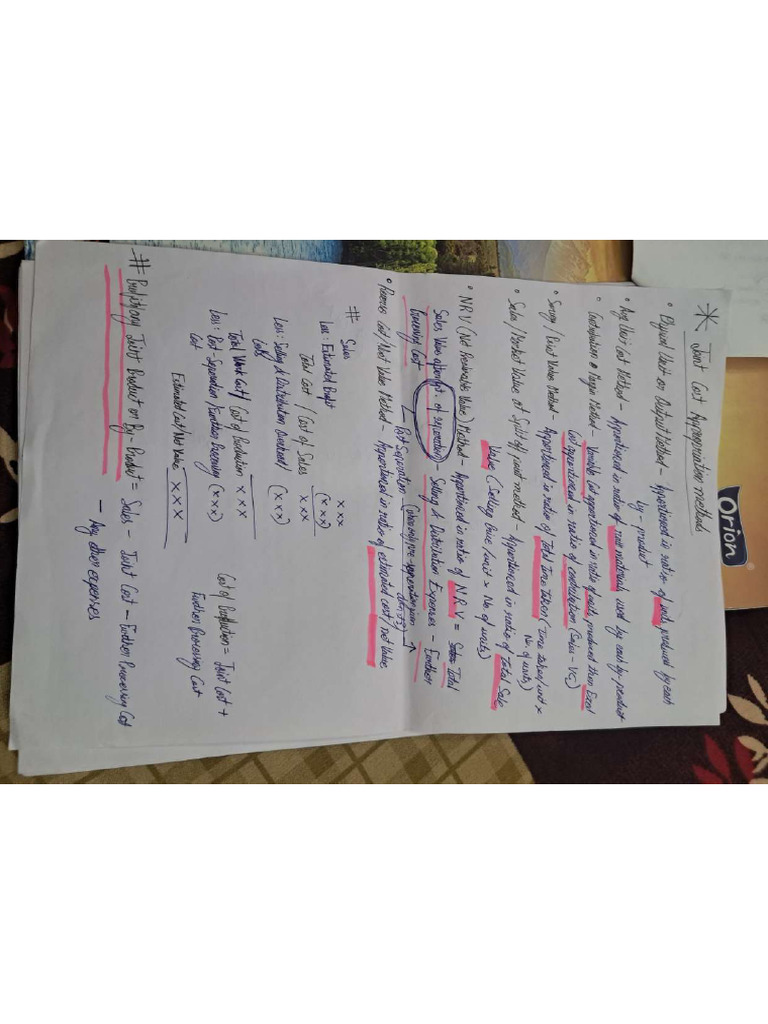 * Joint Cost Appropriation methods
• Physical Unit or Output Method - Apportioned in ratio of units produced by each
by-product
• Avg Unit Cost Method - Apportioned in ratio of raw materials used by each by-product
• Contribution Margin Method - Variable Cost apportioned in ratio of units produced then Fixed
Cost apportioned in ratio of contribution (Sales - VC)
• Survey / Point Value Method - Apportioned in ratio of Total Time Taken (Time taken/unit x
No. of units)
• Sales / Market Value at Split off point method - Apportioned in ratio of Total Sale
Value (Selling Price/unit x No. of units)
• NRV (Net Realisable Value) Method - Apportioned in ratio of NRV = Total
Sales Value after pt. of separation - Selling & Distribution Expenses - Further
Processing Cost
Post Separation
• Reverse Cost / Net Value Method - Apportioned in ratio of estimated cost / net value
# Sales xxx
Less: Estimated Profit (xxx)
Total Cost / Cost of Sales xxx
Less: Selling & Distribution Overhead / (xxx)
Costs
Total Work Cost / Cost of Production xxx
Less: Post-Separation / Further Processing (xxx)
Cost
Estimated Cost / Net Value xxx
Cost of Production = Joint Cost +
Further Processing Cost
# Profit of any Joint Product or By-Product = Sales - Joint Cost - Further Processing Cost
- Any other expenses
Orion